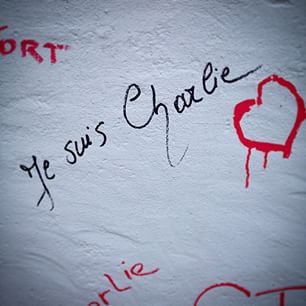 ORT
Je suis Charlie
arlie